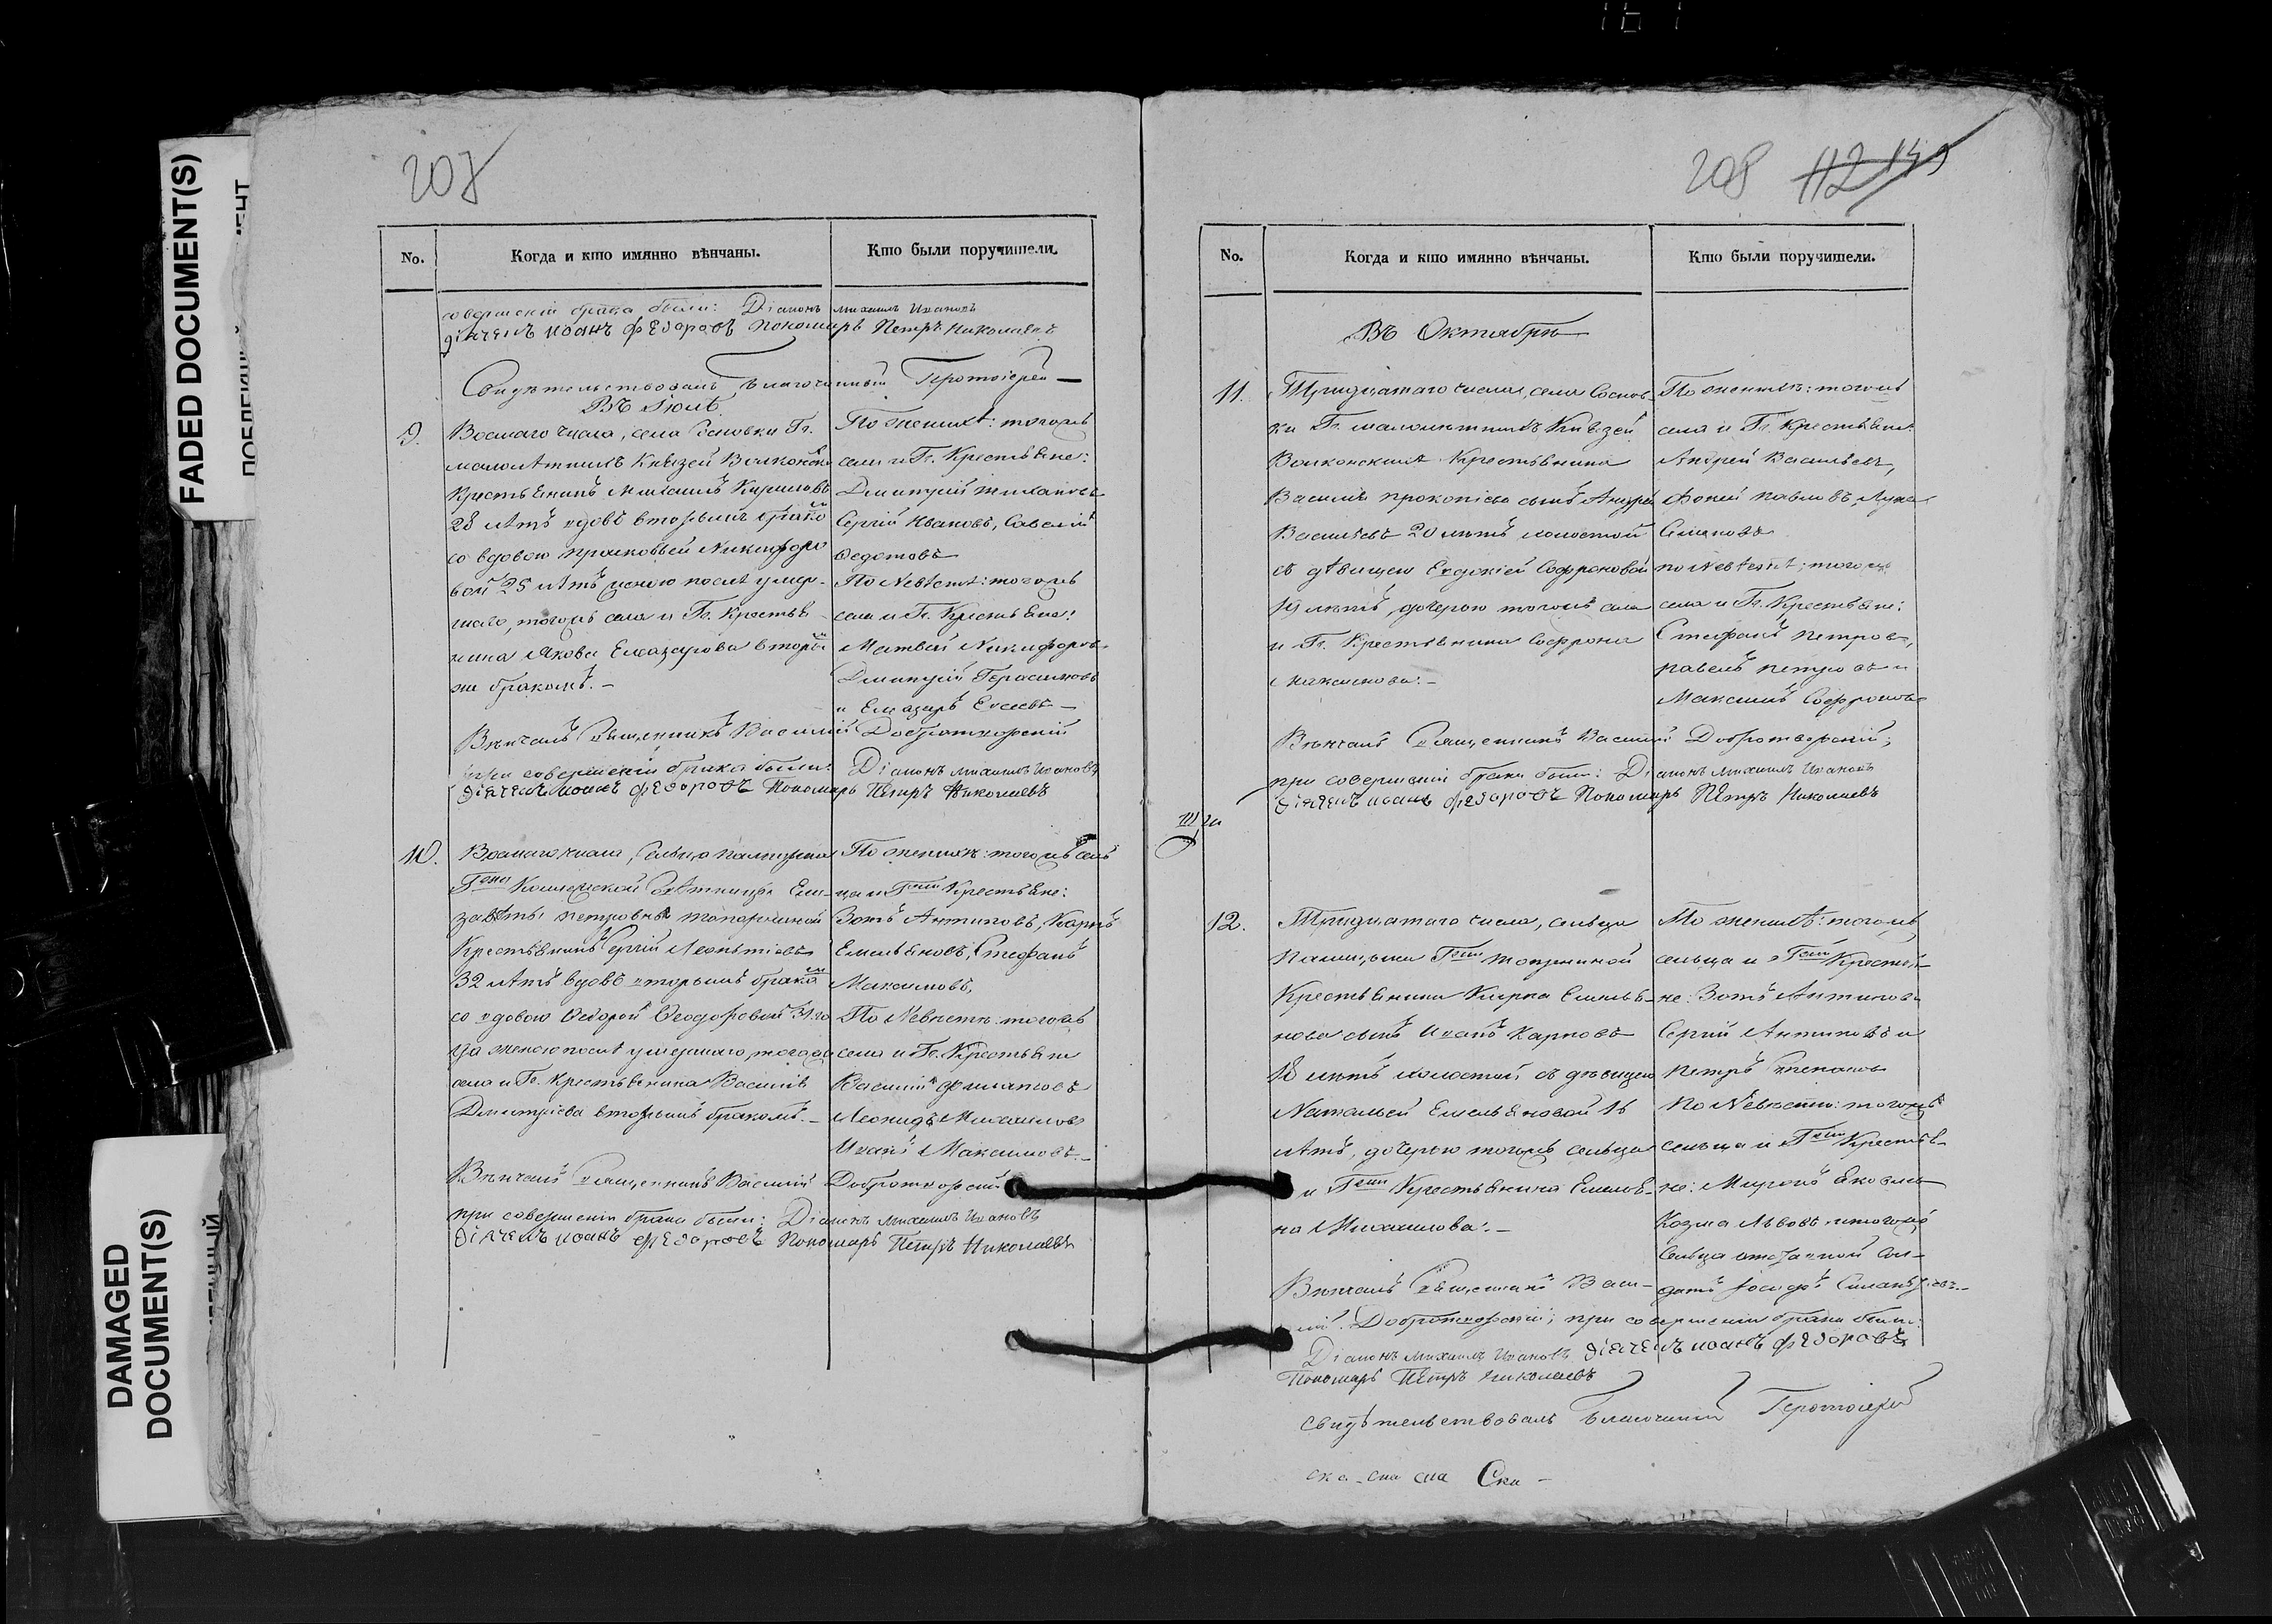 FADED DOCUMENT(S)
DAMAGED
DOCUMENT(S)
207
No.
Когда и кто имянно вѣнчаны.
Кто были поручители.
совершеніи брака были: Діаконъ Михаилъ Ивановъ
діячекъ иоанъ федоровъ Пономарь Петръ Николаевъ
Свидѣтельствовалъ Благочинный Протоіерей
Въ Іюлѣ
9.
Восмаго числа, села Сосновки Гг.
малолѣтныхъ Князей Волконски
Крестьянинъ Михаилъ Кириловъ
28 лѣтъ вдовъ вторымъ бракомъ
со вдовою Прасковьей Никифоро
вой 25 лѣтъ женою послѣ умер-
шаго, тогожъ села и Гг. Крестья-
нина Якова Елазарова вторы
мъ бракомъ.
По женихѣ: тогожъ
села и Гг. Крестьяне:
Дмитрій
Сергій Ивановъ, Савелій
Федотовъ
По Невѣстѣ: тогожъ
села и Гг. Крестьяне:
Матвѣй Никифоровъ
Дмитрій Герасимовъ
и Елазаръ Евсеевъ
Вѣнчалъ Священникъ Василій Добротворскій
при совершеніи брака были: Діаконъ Михаилъ Ивановъ
діячекъ иоанъ федоровъ Пономарь Петръ Николаевъ
10.
Восмаго числа, Сельца
Гжи Ели-
заветы Петровны
Крестьянинъ Сергій Леонтіевъ
32 лѣтъ вдовъ вторымъ бракомъ
со вдовою Федорой Феодоровой 31 го
да женою послѣ умершаго, тогожъ
села и Гг. Крестьянина Василія
Дмитріева вторымъ бракомъ.
По женихѣ: тогожъ сель
ца и Гжи Крестьяне:
Зотъ Антиповъ, Карпъ
Емельяновъ, Стефанъ
Максимовъ,
По Невѣстѣ: тогожъ
села и Гг. Крестьяне
Василій Филиповъ
Леонидъ Михаиловъ
Иванъ Максимовъ.
Вѣнчалъ Священникъ Василій Добротворскій
при совершеніи брака были: Діаконъ Михаилъ Ивановъ
діячекъ иоанъ федоровъ Пономарь Петръ Николаевъ
208 112
No.
Когда и кто имянно вѣнчаны.
Кто были поручители.
Въ Октябрѣ
11.
Тридцатаго числа, села Соснов-
ки Гг. малолѣтныхъ Князей
Волконскихъ Крестьянина
Василія Прокопіева сынъ Андрей
Васильевъ 20 лѣтъ холостой
съ дѣвицею Евдокіей Софроновой
19 лѣтъ, дочерью тогожъ села
и Гг. Крестьянина Софрона
Максимова.
По женихѣ: тогожъ
села и Гг. Крестьяне:
Андрей Васильевъ,
Фокей Павловъ, Лука
Семеновъ
по Невѣстѣ; тогожъ
села и Гг. Крестьяне:
Стефанъ Петровъ,
Павелъ Петровъ и
Максимъ Софроновъ
Вѣнчалъ Священникъ Василій Добротворскій;
при совершеніи брака были: Діаконъ Михаилъ Ивановъ
діячекъ иоанъ федоровъ Пономарь Петръ Николаевъ
12.
Тридцатаго числа, сельца
Гжи
Крестьянина Карпа Емелья-
нова сынъ Иванъ Карповъ
18 лѣтъ холостой, съ дѣвицею
Натальей Емельяновой 16
лѣтъ, дочерью тогожъ сельца
и Гжи Крестьянина Емелья-
на Михаилова.
По женихѣ: тогожъ
сельца и Гжи Крестья-
не: Зотъ Антиповъ
Сергій Антиповъ и
Петръ Степановъ
По Невѣстѣ: тогожъ
сельца и Гжи Крестья-
не: Миронъ Яковлевъ
Козма Львовъ и тогожъ
сельца отставной сол-
датъ
Вѣнчалъ Священникъ Васи-
лій Добротворскій; при совершеніи брака были:
Діаконъ Михаилъ Ивановъ діячекъ иоанъ федоровъ
Пономарь Петръ Николаевъ
Свидѣтельствовалъ Благочинный Протоіерей